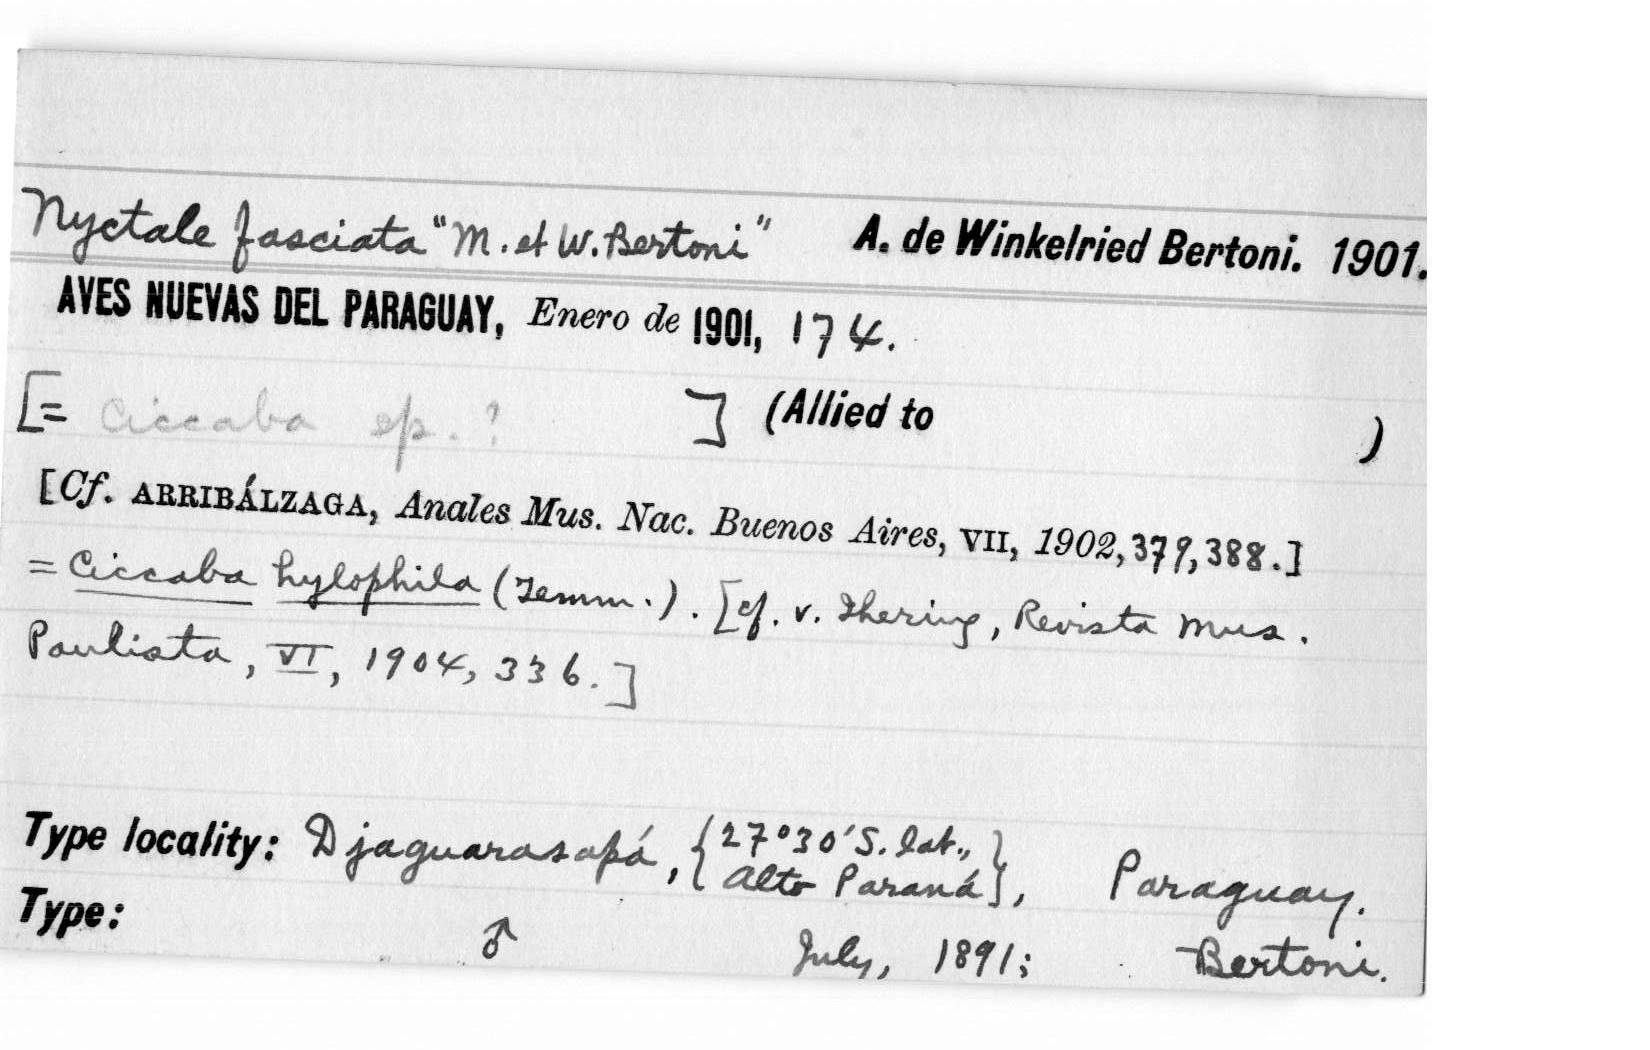 Nyctale fasciata "M. et W. Bertoni" A. de Winkelried Bertoni. 1901.
AVES NUEVAS DEL PARAGUAY, Enero de 1901, 174.
[= Ciccaba sp. ? ] (Allied to )
[Cf. ARRIBÁLZAGA, Anales Mus. Nac. Buenos Aires, VII, 1902, 379, 388.]
= Ciccaba hylophila (Temm.). [cf. v. Ihering, Revista Mus.
Paulista, VI, 1904, 336.]
Type locality: Djaguarasapá, {27°30′S. lat., Alto Paraná}, Paraguay.
Type: ♂ July, 1891; Bertoni.